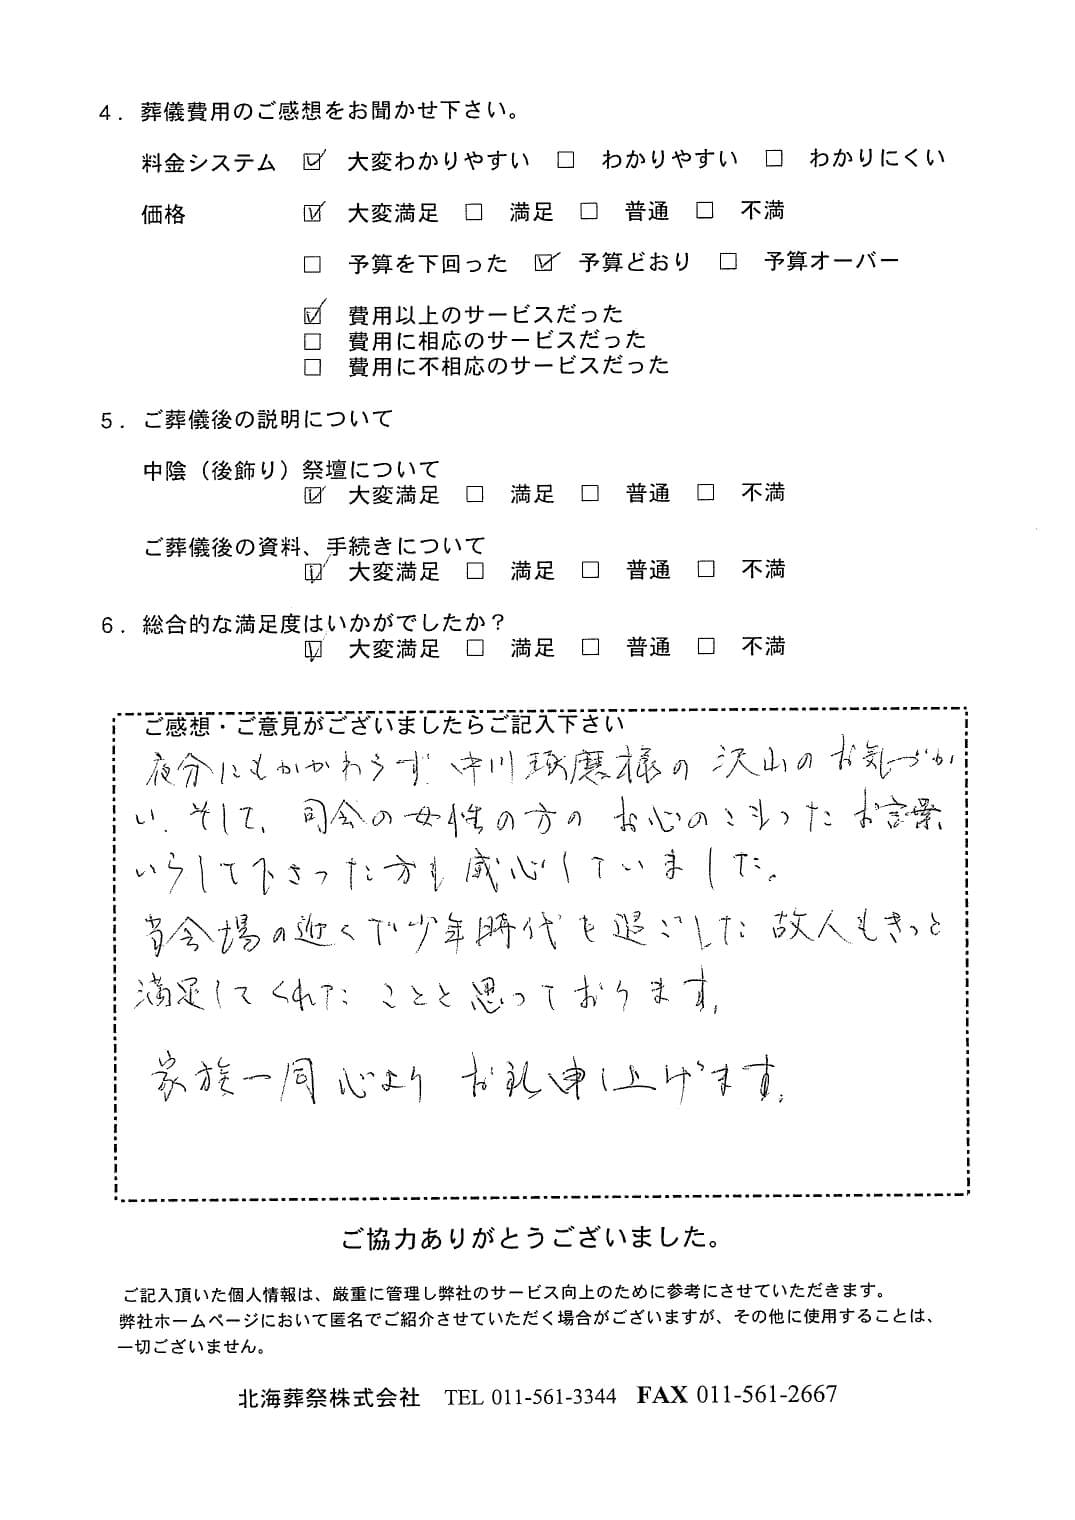 4．葬儀費用のご感想をお聞かせ下さい。
料金システム ☑ 大変わかりやすい □ わかりやすい □ わかりにくい
価格 ☑ 大変満足 □ 満足 □ 普通 □ 不満
□ 予算を下回った ☑ 予算どおり □ 予算オーバー
☑ 費用以上のサービスだった
□ 費用に相応のサービスだった
□ 費用に不相応のサービスだった
5．ご葬儀後の説明について
中陰（後飾り）祭壇について
☑ 大変満足 □ 満足 □ 普通 □ 不満
ご葬儀後の資料、手続きについて
☑ 大変満足 □ 満足 □ 普通 □ 不満
6．総合的な満足度はいかがでしたか？
☑ 大変満足 □ 満足 □ 普通 □ 不満
ご感想・ご意見がございましたらご記入下さい
夜分にもかかわらず、中川琢磨様の沢山のお気づか
い、そして、司会の女性の方のお心のこもったお言葉、
いらして下さった方も感心していました。
当会場の近くで少年時代を過ごした故人もきっと
満足してくれたことと思っております。
家族一同心よりお礼申し上げます。
ご協力ありがとうございました。
ご記入頂いた個人情報は、厳重に管理し弊社のサービス向上のために参考にさせていただきます。
弊社ホームページにおいて匿名でご紹介させていただく場合がございますが、その他に使用することは、
一切ございません。
北海葬祭株式会社 TEL 011-561-3344 FAX 011-561-2667